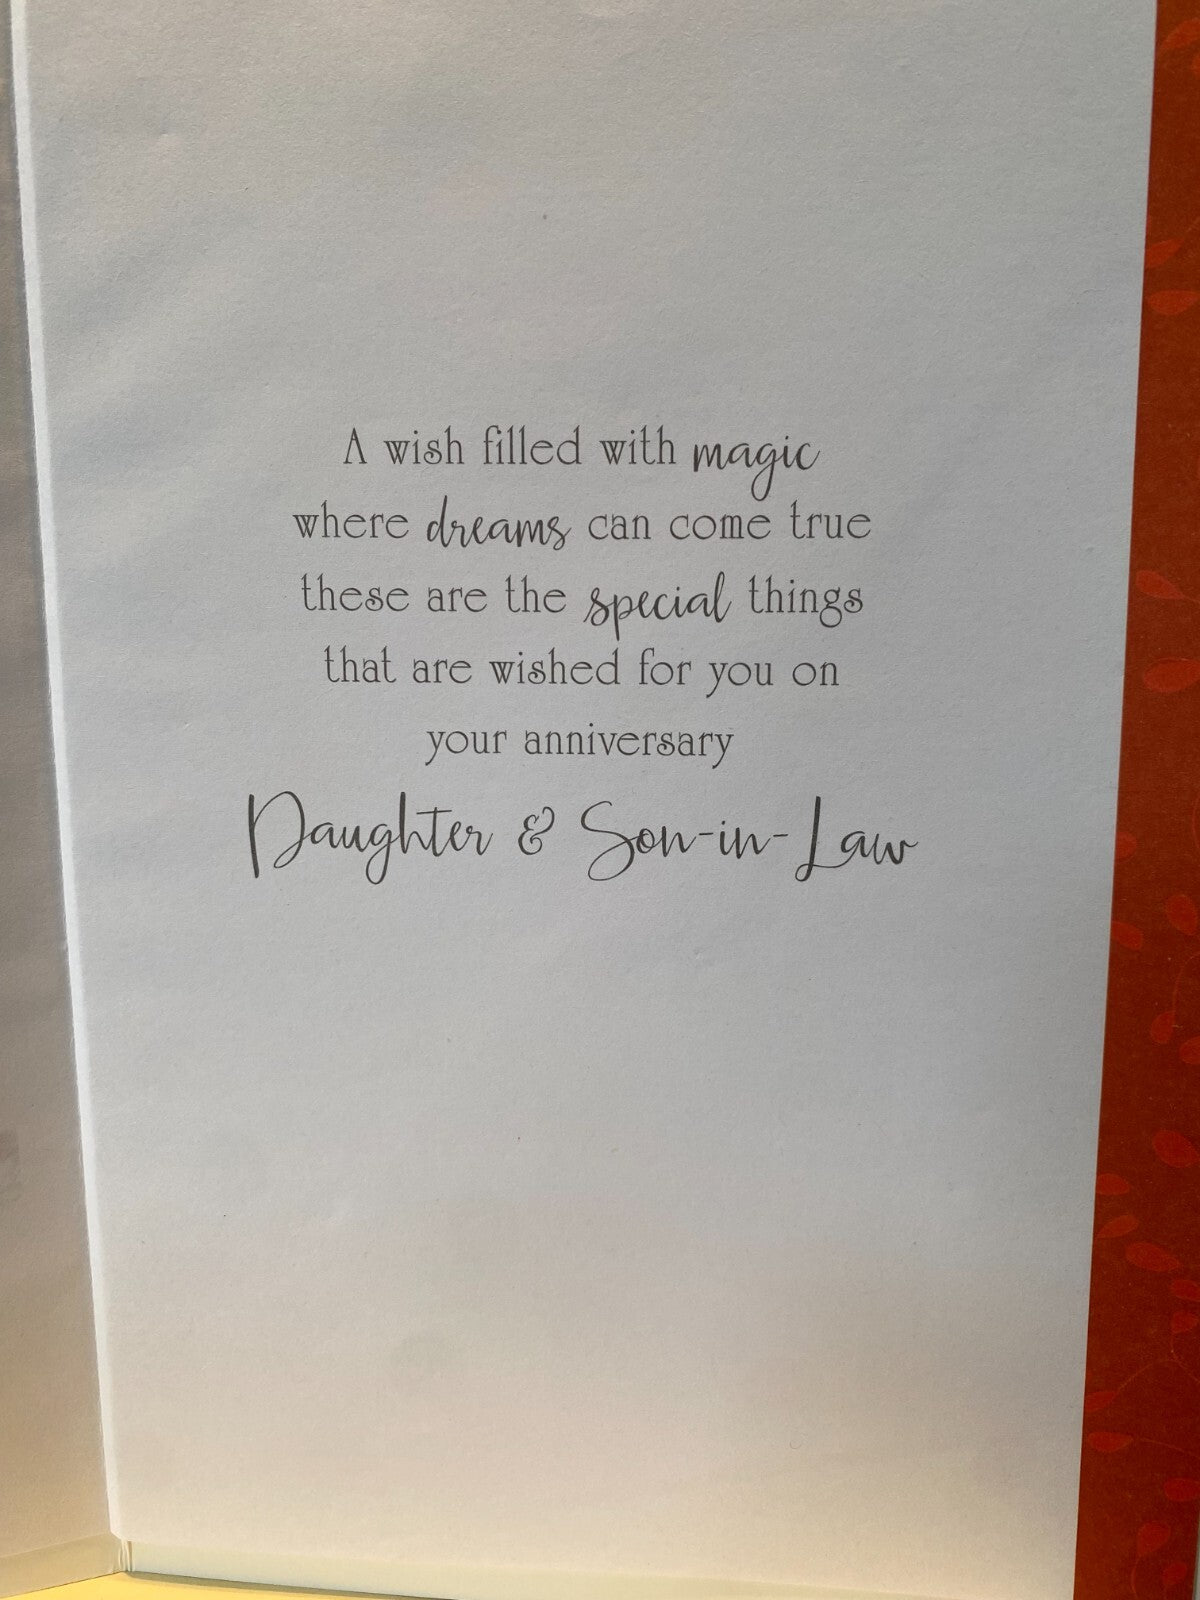 A wish filled with magic
where dreams can come true
these are the special things
that are wished for you on
your anniversary
Daughter & Son-in-Law